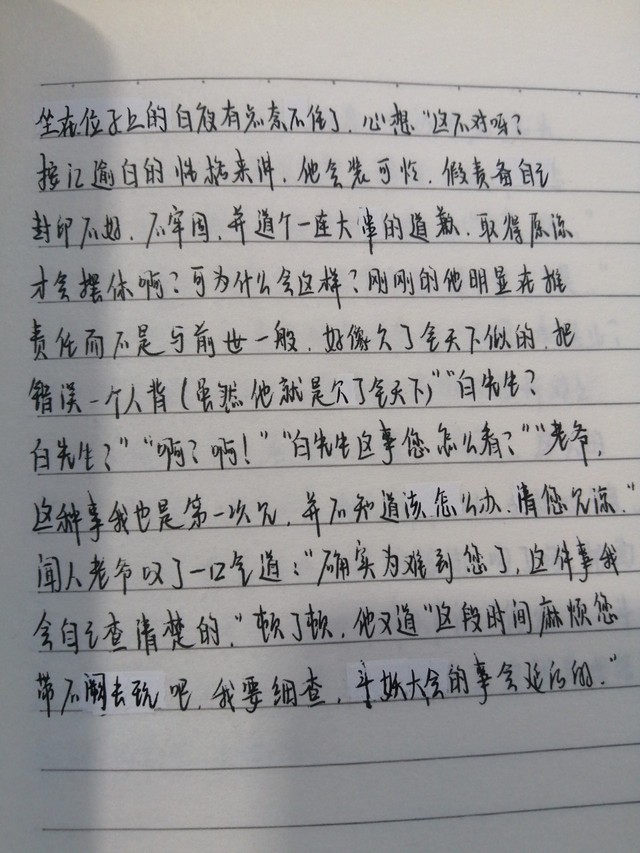 坐在位子上的白夜有点奈不住了，心想“这不对呀？
按江逾白的性格来讲，他会装可怜，假责备自己
封印不好，不牢固，并道个一连大串的道歉，取得原谅
才会摆休啊？可为什么会这样？刚刚的他明显在推
责任而不是与前世一般，好像欠了全天下似的，把
错误一个人背（虽然他就是欠了全天下）”“白先生？
白先生？”“啊？啊！”“白先生这事您怎么看？”“老爷，
这种事我也是第一次见，并不知道该怎么办，请您见谅。”
闻人老爷叹了一口气道：“确实为难到您了，这件事我
会自己查清楚的。”顿了顿，他又道“这段时间麻烦您
带不阙去玩吧，我要细查，斗妖大会的事会延后的。”